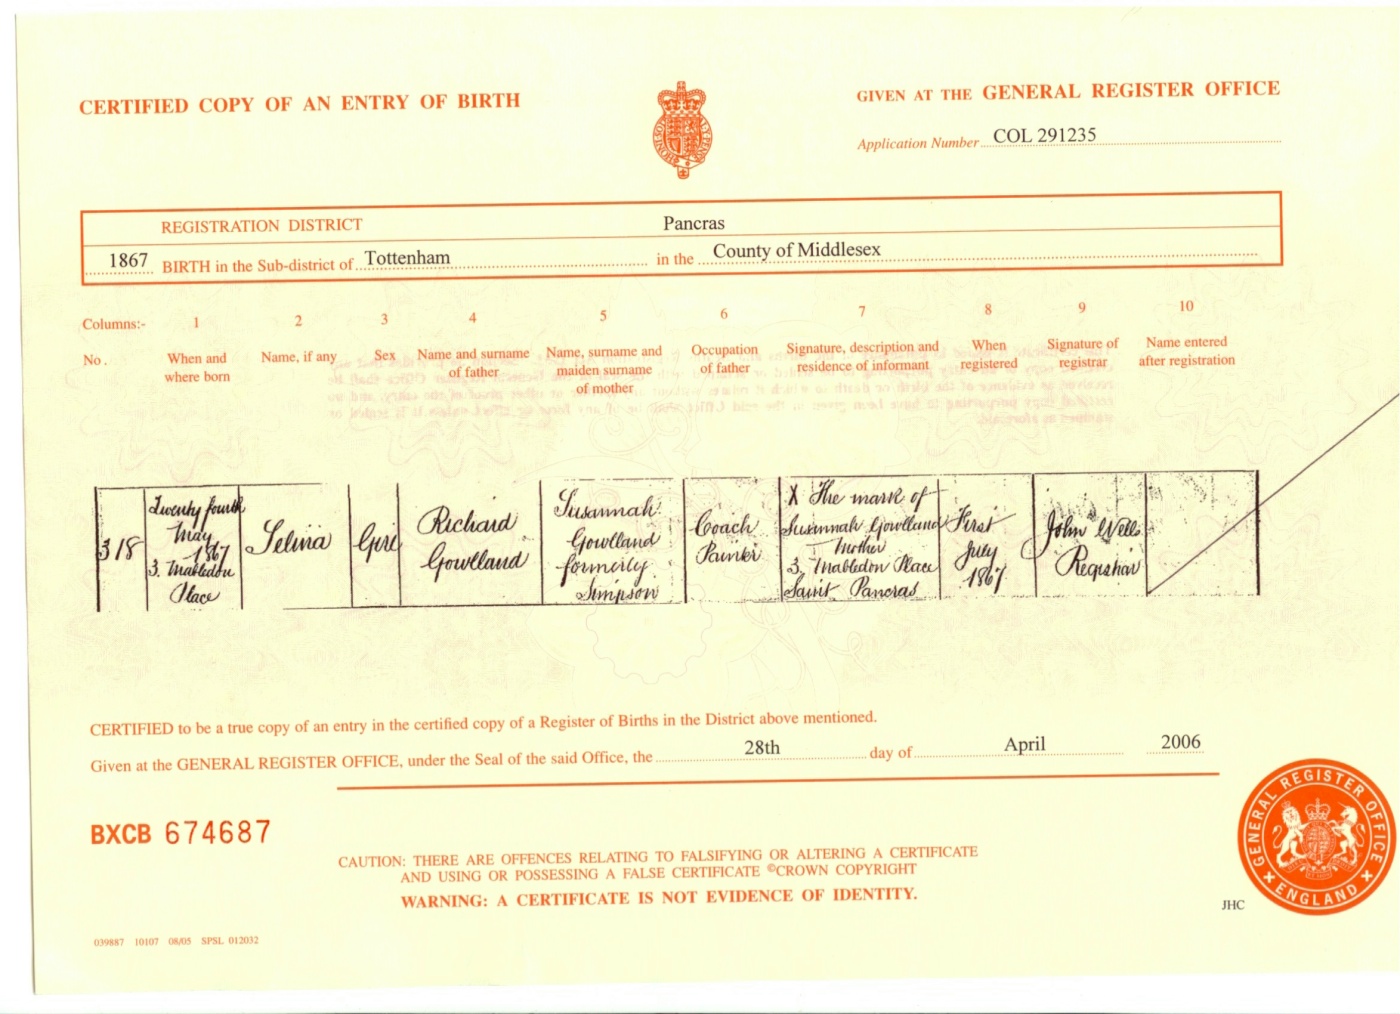 CERTIFIED COPY OF AN ENTRY OF BIRTH
GIVEN AT THE GENERAL REGISTER OFFICE
Application Number COL 291235
REGISTRATION DISTRICT Pancras
1867 BIRTH in the Sub-district of Tottenham in the County of Middlesex
Columns:- 1 2 3 4 5 6 7 8 9 10
No.
When and
where born
Name, if any
Sex
Name and surname
of father
Name, surname and
maiden surname
of mother
Occupation
of father
Signature, description and
residence of informant
When
registered
Signature of
registrar
Name entered
after registration
318
Twenty fourth
May
1867
3. Mabledon
Place
Selina
Girl
Richard
Gowlland
Susannah
Gowlland
formerly
Simpson
Coach
Painter
X The mark of
Susannah Gowlland
Mother
3. Mabledon Place
Saint Pancras
First
July
1867
John Wells
Registrar
CERTIFIED to be a true copy of an entry in the certified copy of a Register of Births in the District above mentioned.
Given at the GENERAL REGISTER OFFICE, under the Seal of the said Office, the 28th day of April 2006
BXCB 674687
CAUTION: THERE ARE OFFENCES RELATING TO FALSIFYING OR ALTERING A CERTIFICATE
AND USING OR POSSESSING A FALSE CERTIFICATE ©CROWN COPYRIGHT
WARNING: A CERTIFICATE IS NOT EVIDENCE OF IDENTITY.
GENERAL REGISTER OFFICE
ENGLAND
JHC
039887 10107 08/05 SPSL 012032